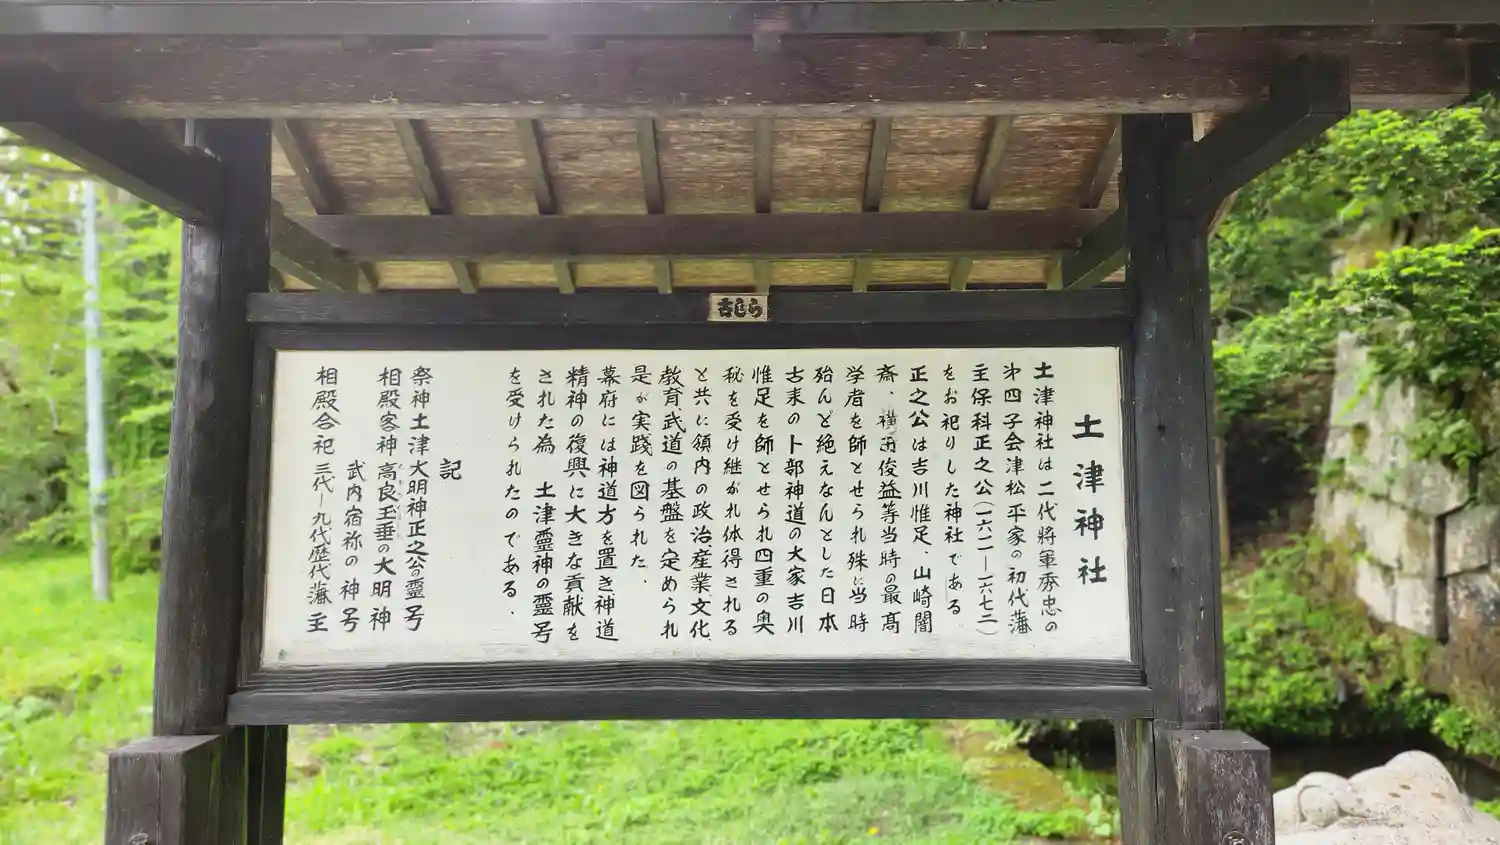 古じら
土津神社
土津神社は二代将軍秀忠の
第四子会津松平家の初代藩
主保科正之公(一六一一―一六七二)
をお祀りした神社である。
正之公は吉川惟足、山崎闇
斎、横田俊益等当時の最高
学者を師とせられ殊に当時
殆んど絶えなんとした日本
古来の卜部神道の大家吉川
惟足を師とせられ四重の奥
秘を受け継がれ体得される
と共に領内の政治産業文化
教育武道の基盤を定められ
是が実践を図られた、
幕府には神道方を置き神道
精神の復興に大きな貢献を
された為 土津霊神の霊号
を受けられたのである、
記
祭神土津大明神正之公の霊号
相殿客神 高良玉垂の大明神
武内宿祢の神号
相殿合祀 三代―九代歴代藩主